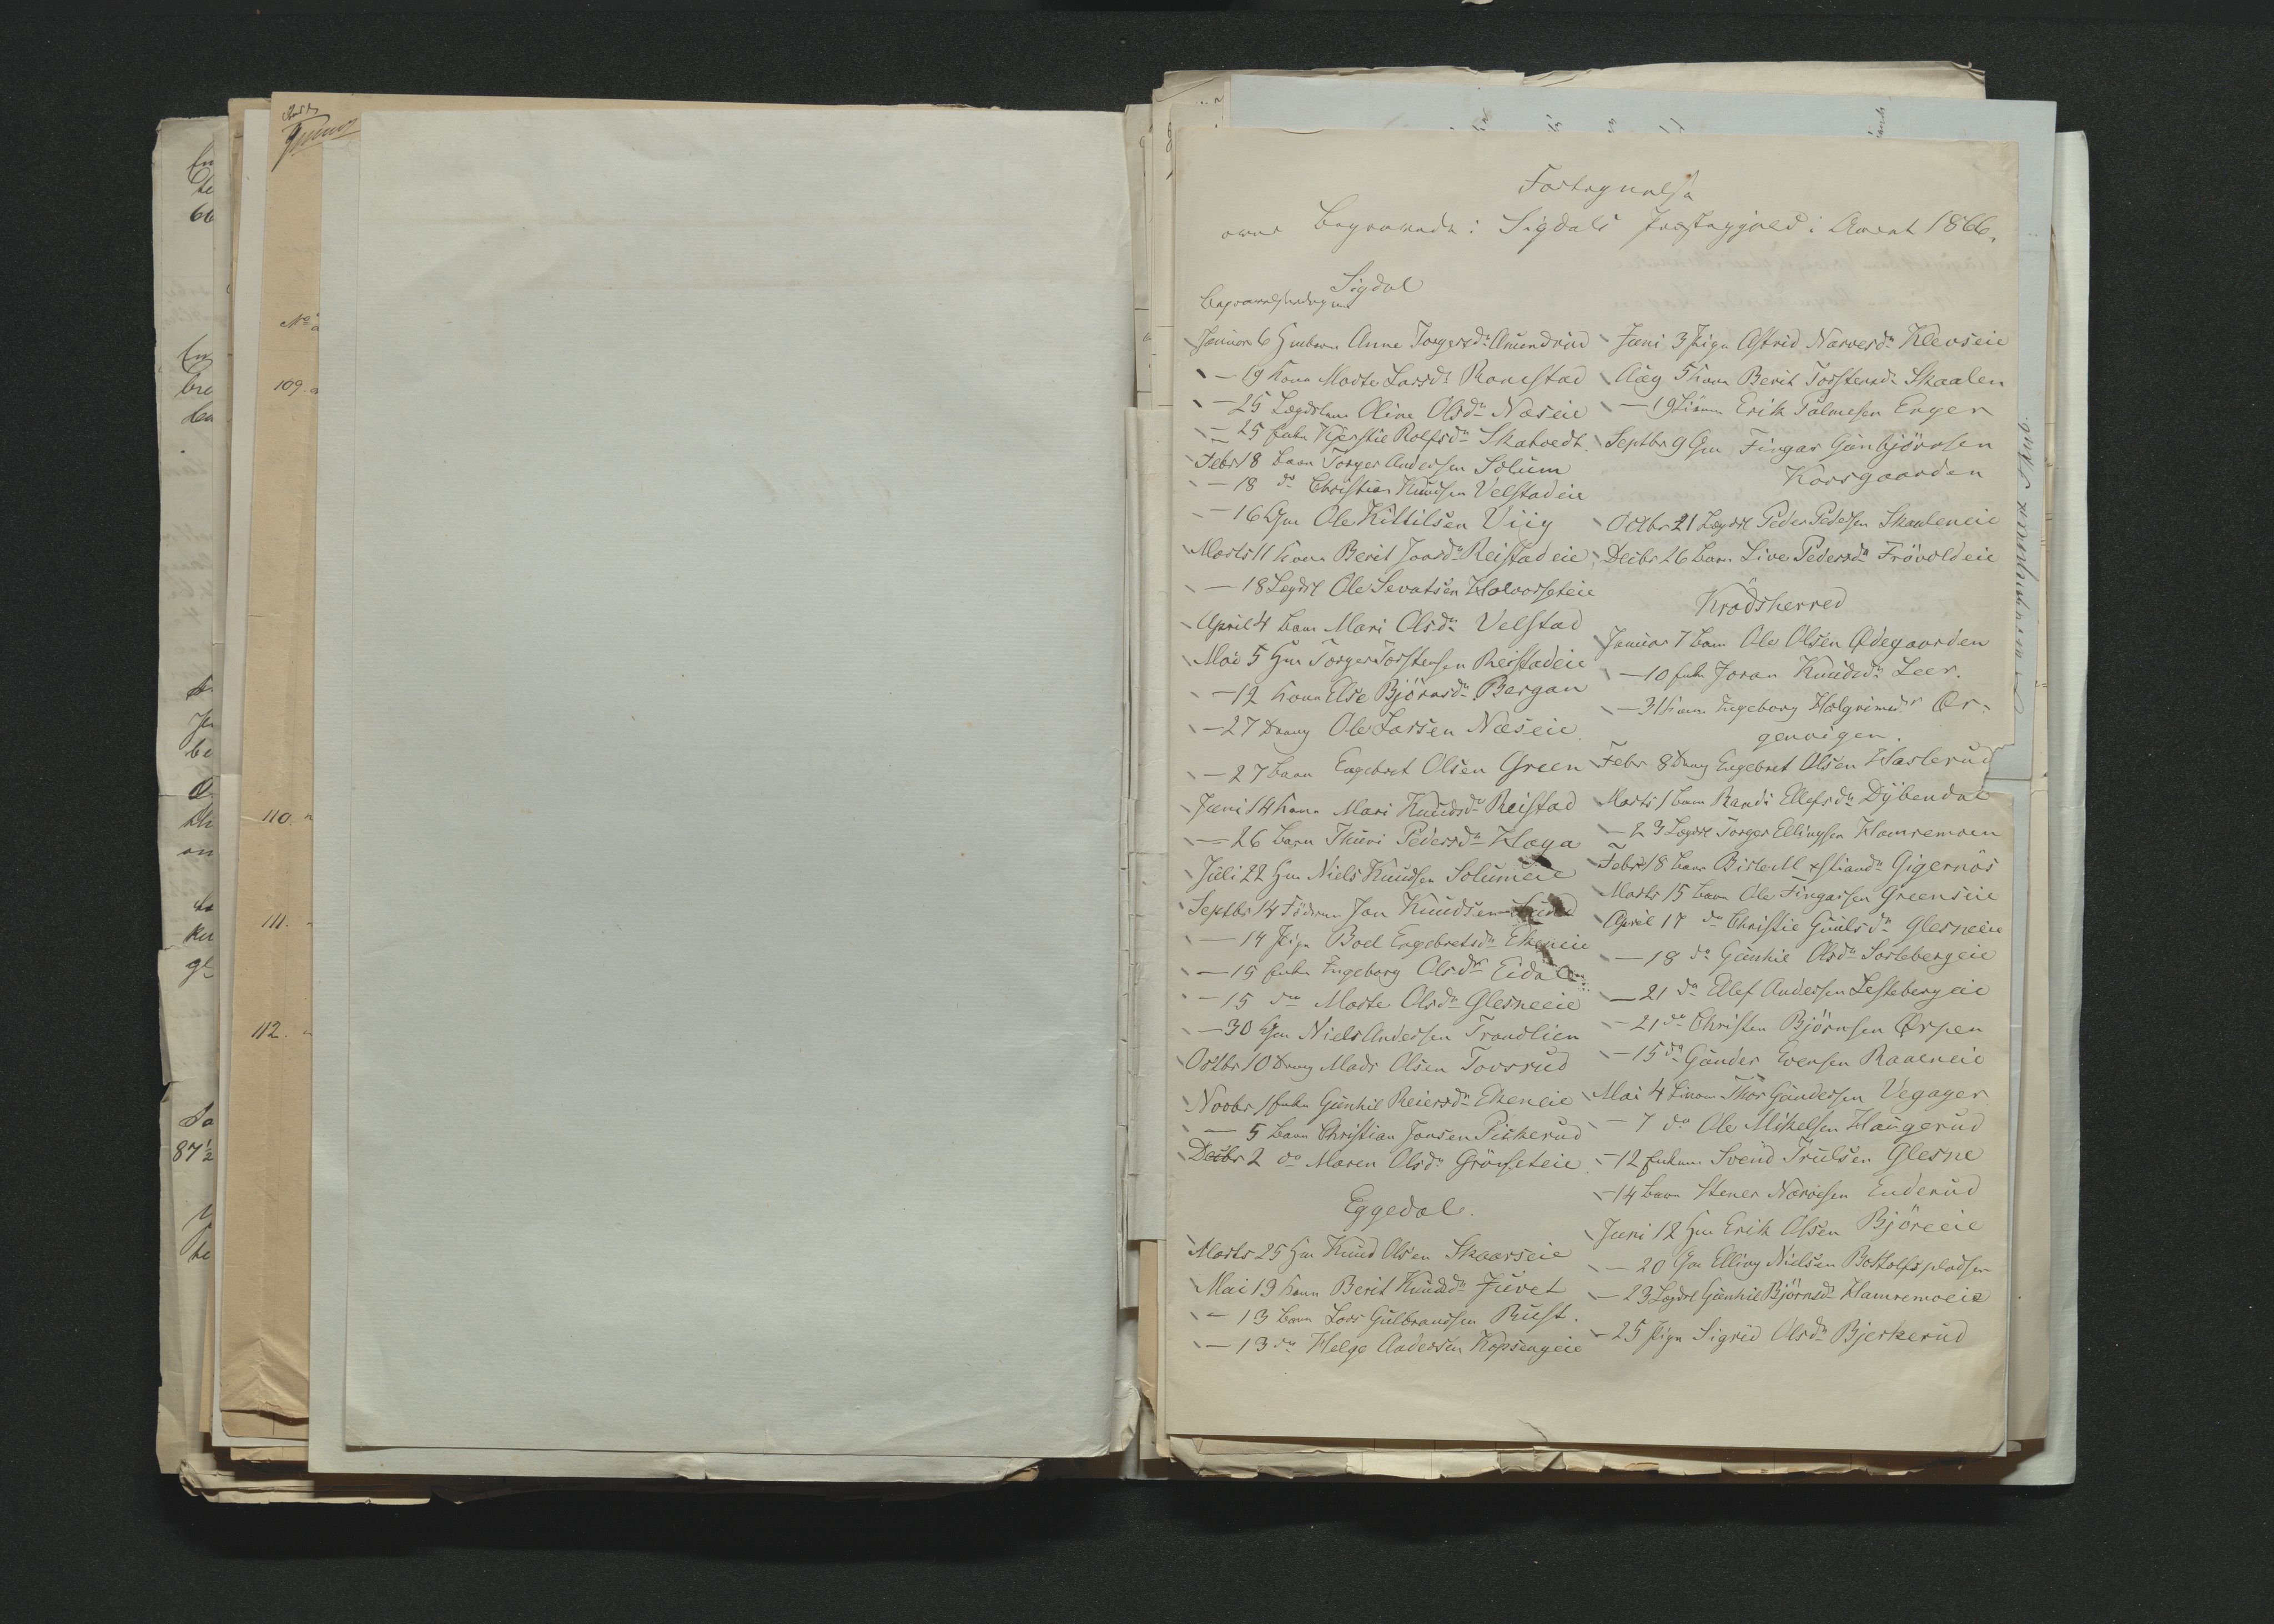 No
109.
110.
111.
112.
87½
Fortegnelse
over Begravede i Sigdals Præstegjæld i Aaret 1866.
Sigdal
Begravelsesdagen
Januar 6 Gmbarn Anne Torgersdr Amundrud
— 19 Kone Marte Larsdr Ronestad
— 25 Lægdslem Oline Olsdr Næseie
— 25 Enke Kjerstie Rolfsdr Skatvedt
Febr 18 Barn Torger Andersen Solum
— 18 do Christian Knudsen Velstadeie
— 16 Gm Ole Kittilsen Viig
Marts 11 Kone Berit Jonsdr Reistadeie
— 18 Legdsl Ole Sevatsen Halvorseteie
April 4 Barn Mari Olsdr Velstad
Mai 5 Hm Torger Torstensen Reistadeie
— 12 Kone Else Björnsdr Bergan
— 27 Dreng Ole Larsen Næseie
— 27 Barn Engebret Olsen Green
Juni 14 Kone Mari Knudsdr Reistad
— 26 Barn Thuri Pedersdr Haga
Juli 22 Hm Niels Knudsen Solumeie
Septbr 14 Föderm Jon Knudsen Lund
— 14 Pige Boel Engebretsdr Ekeneie
— 15 Enke Ingeborg Olsdr Eidalen
— 15 do Marte Olsdr Glesneeie
— 30 Gm Niels Andersen Frandlien
Octbr 10 Dreng Mads Olsen Tovsrud
Novbr 1 Enke Gunhil Reiersdr Ekeneie
— 5 Barn Christian Jonsen Piskerud
Decbr 2 do Maren Olsdr Grönseteie
Eggedal.
Marts 25 Hm Knud Olsen Skaarseie
Mai 13 Kone Berit Knudsdr Juvet
— 13 Barn Lars Gulbrandsen Rust.
— 13 do Helge Andersen Kopsengeie
Juni 3 Pige Astrid Narvesdr Klevseie
Aug 5 Kone Berit Torstensdr Skaalen
— 19 Erik Palmesen Enger
Septbr 9 Gm Fingar Gunbjörnsen
Korsgaarden
Octbr 21 Legdsl Peder Pedersen Skaaleneie
Decbr 26 Barn Live Pedersdr Frövoldeie
Krödsherred
Januar 7 Barn Ole Olsen Ødegaarden
— 10 Enke Joran Knudsdr Leer.
— 31 Kone Ingeborg Halgrimsdr Ør-
genvigen.
Febr 8 Dreng Engebret Olsen Haslerud
Marts 1 Barn Randi Ellefsdr Dybendal
— 23 Legdsl Torger Ellingsen Hamremoen
Febr 18 Barn Birte M xstiansdr Gigernös
Marts 15 Barn Ole Fingarsen Greenseie
April 17 do Christie Guulsdr Glesneeie
— 18 do Gunhil Olsdr Sorlebergeie
— 21 do Ellef Andersen Leslebergeie
— 21 do Christen Björnsen Ørpen
— 15 do Gunder Evensen Raaeneie
Mai 4 Thor Gundersen Vegager
— 7 do Ole Mikelsen Haugerud
— 12 Enkem Svend Trulsen Glesne
— 14 Barn Stener Narvesen Enderud
Juni 12 Hm Erik Olsen Björeeie
— 20 Gm Elling Nielsen Bottolfspladsen
— 23 Legdsl Gunhil Björnsdr Hamremoeie
— 25 Pige Sigrid Olsdr Bjerkerud